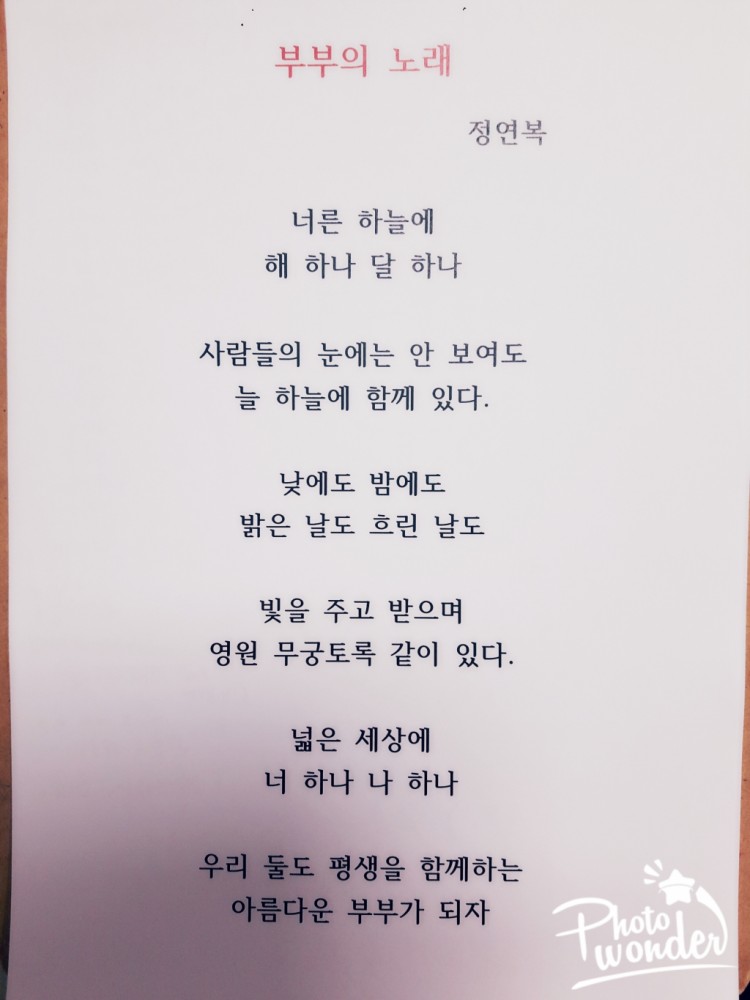 부부의 노래
정연복
너른 하늘에
해 하나 달 하나
사람들의 눈에는 안 보여도
늘 하늘에 함께 있다.
낮에도 밤에도
밝은 날도 흐린 날도
빛을 주고 받으며
영원 무궁토록 같이 있다.
넓은 세상에
너 하나 나 하나
우리 둘도 평생을 함께하는
아름다운 부부가 되자
Photo
wonder